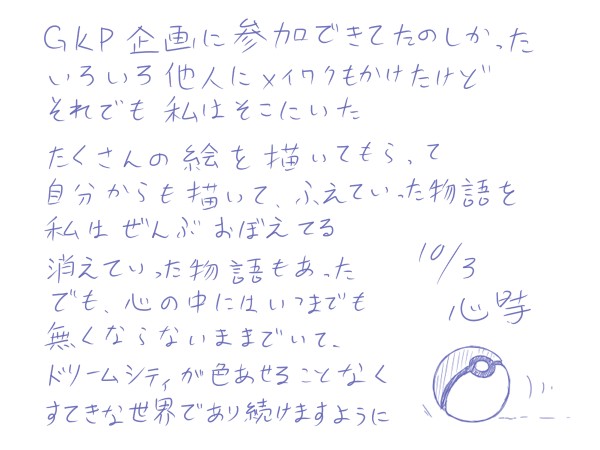 GKP企画に参加できてたのしかった
いろいろ他人にメイワクもかけたけど
それでも私はそこにいた
たくさんの絵を描いてもらって
自分からも描いて、ふえていった物語を
私はぜんぶおぼえてる
消えていった物語もあった
でも、心の中にはいつまでも
無くならないままでいて、
ドリームシティが色あせることなく
すてきな世界であり続けますように
10/3
心時